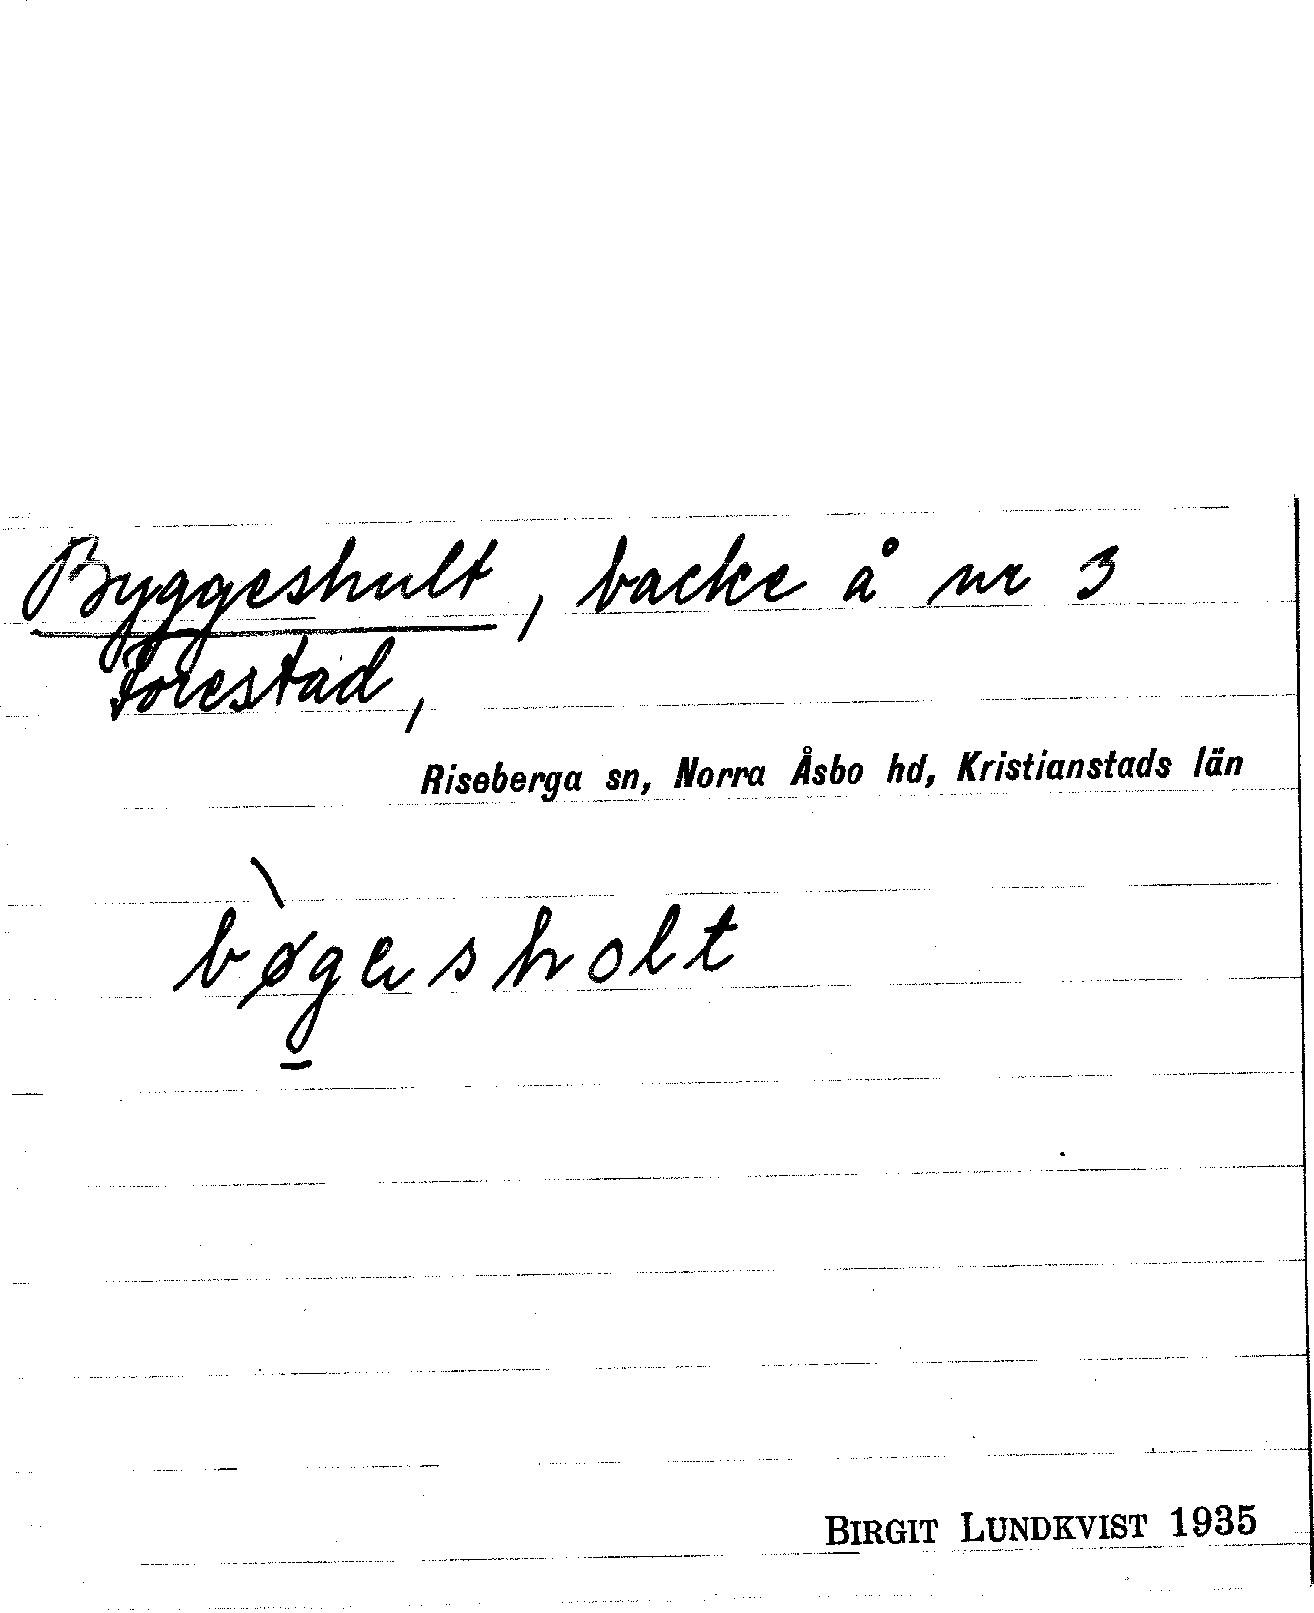 Byggeshult, backe å nr 3
Forestad,
Riseberga sn, Norra Åsbo hd, Kristianstads län
bø̀g̱esholt
BIRGIT LUNDKVIST 1935